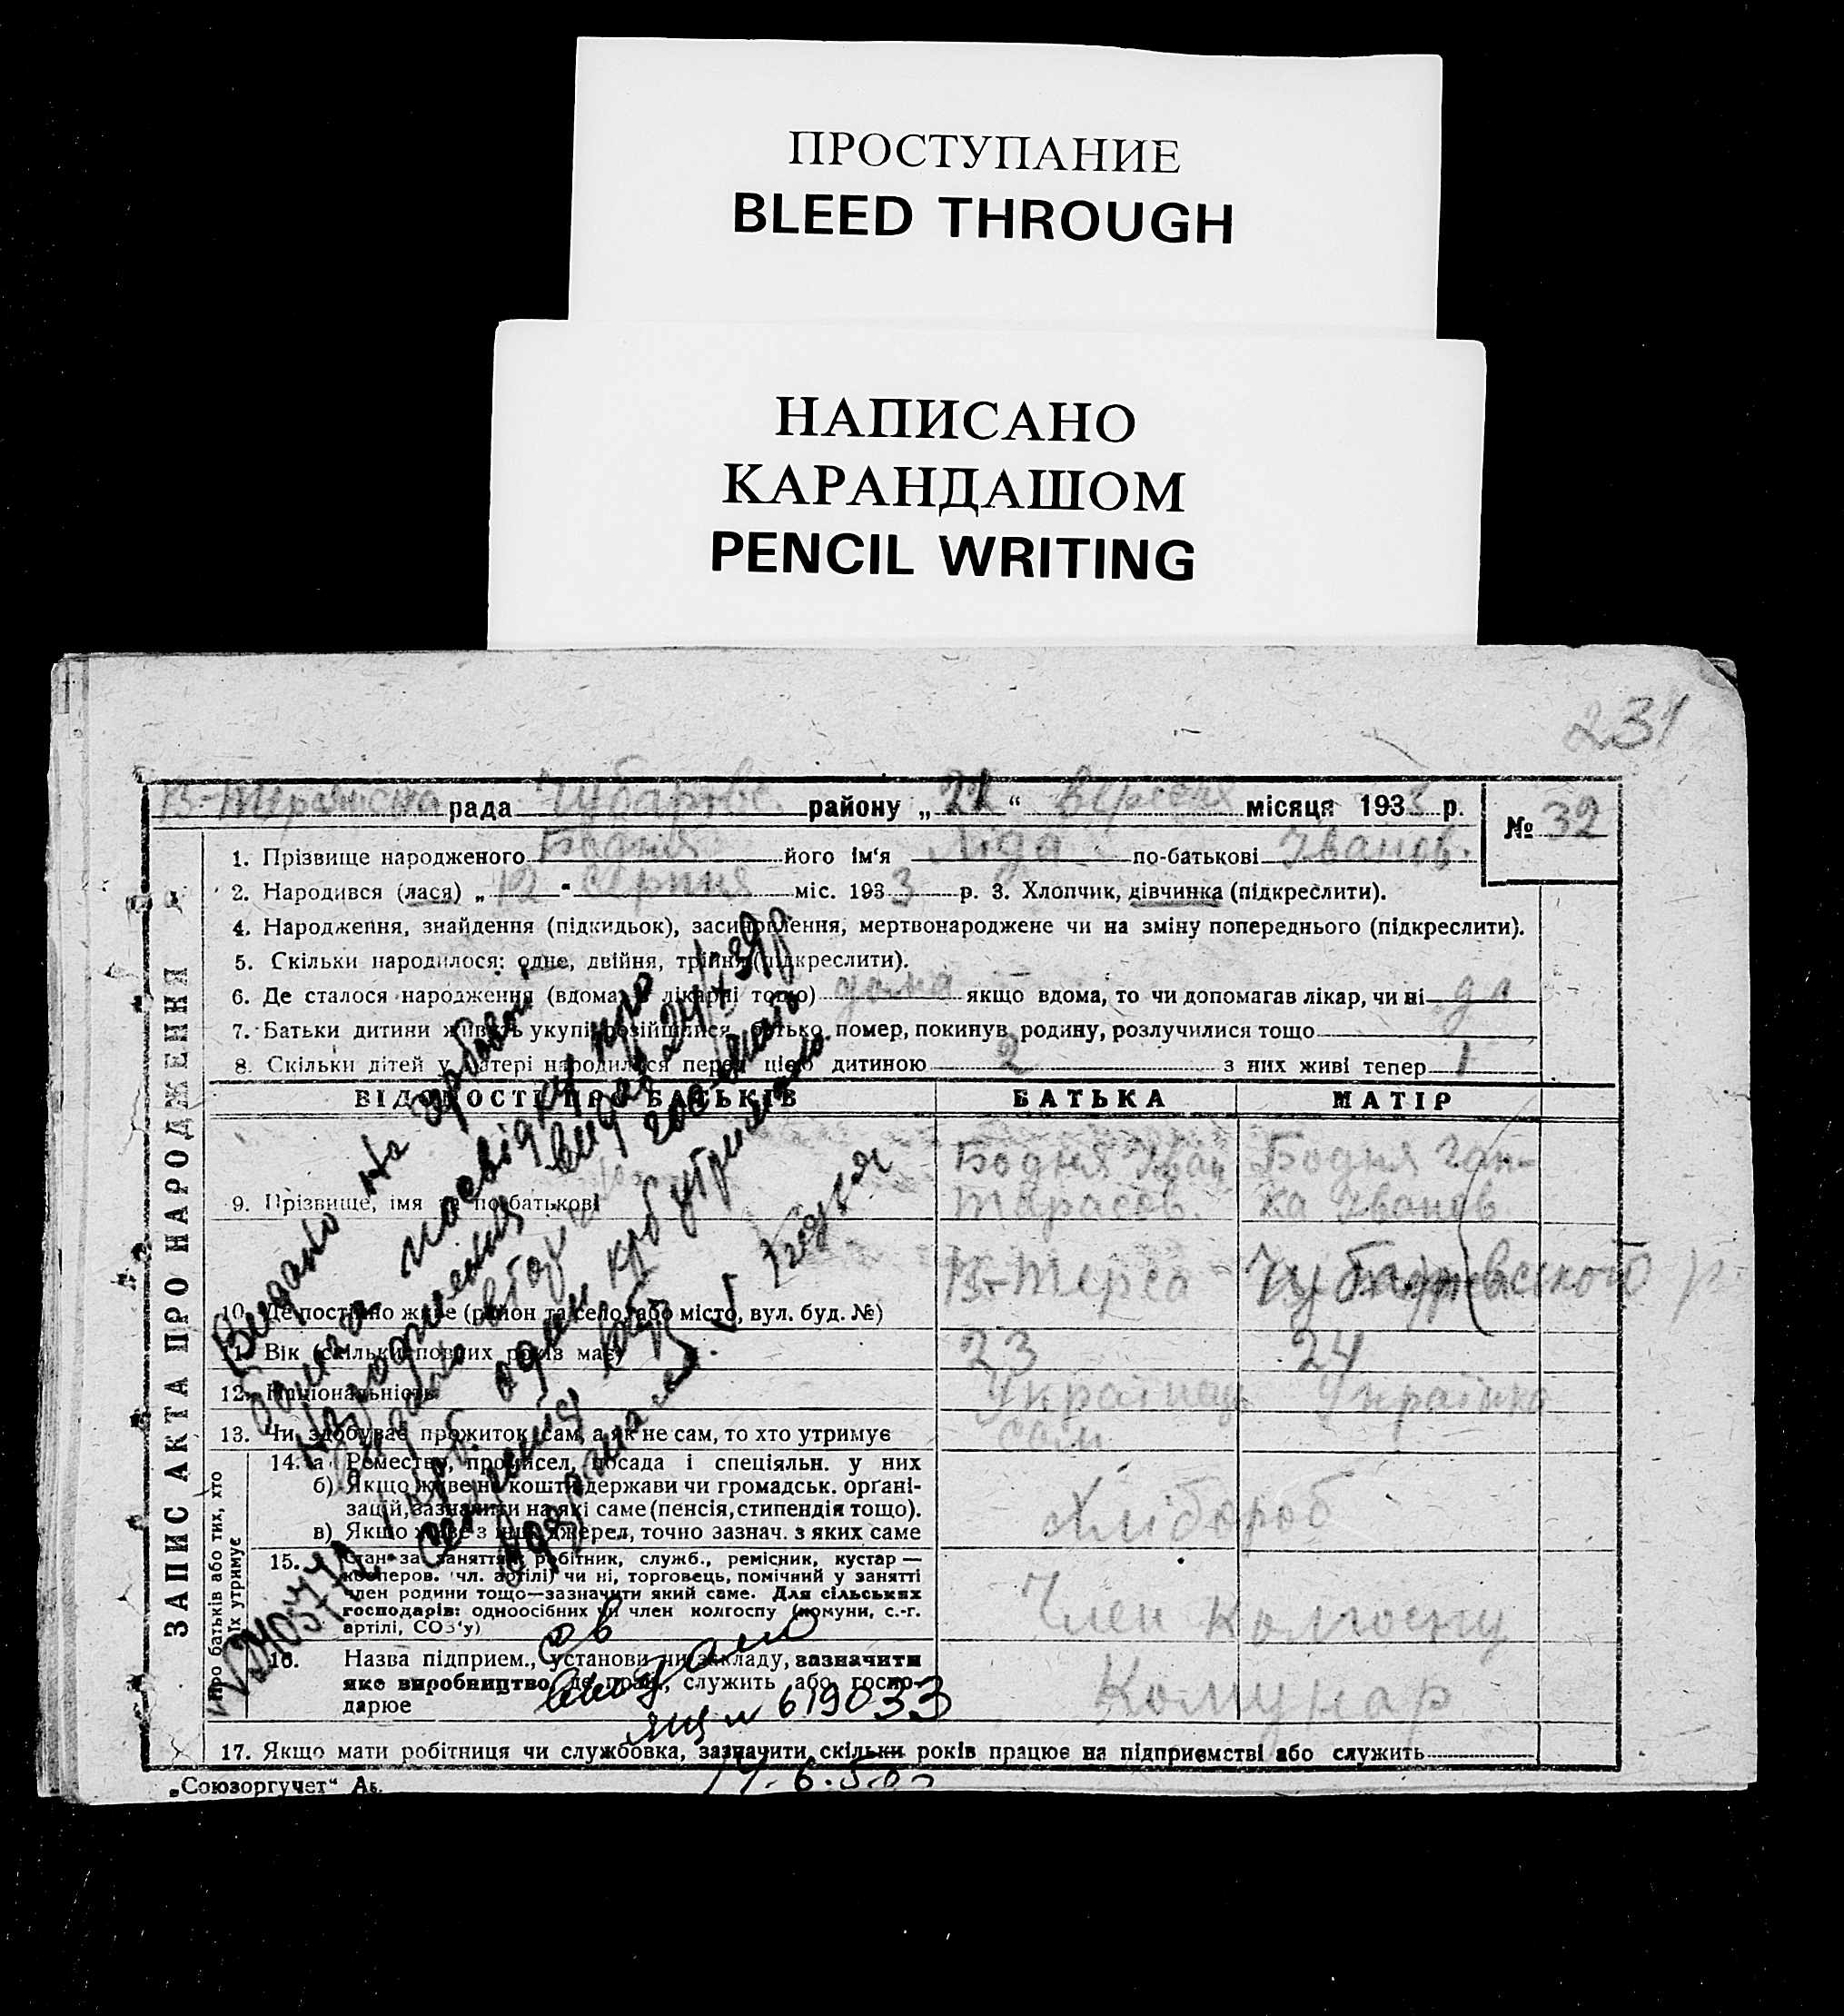 ПРОСТУПАНИЕ
BLEED THROUGH
НАПИСАНО
КАРАНДАШОМ
PENCIL WRITING
231
рада Чубарівс. району „ 21 “ вересня місяця 1933 р.
№ 32
ЗАПИС АКТА ПРО НАРОДЖЕННЯ
1. Прізвище народженого Бодня його ім‘я Ліда по-батькові Іванов.
2. Народився (лася) „ 12 “ серпня міс. 1933 р. 3. Хлопчик, дівчинка (підкреслити).
4. Народження, знайдення (підкидьок), засиновлення, мертвонароджене чи на зміну попереднього (підкреслити).
5. Скільки народилося: одне, двійня, трійня (підкреслити).
6. Де сталося народження (вдома, в лікарні тощо) дома якщо вдома, то чи допомагав лікар, чи ні да
7. Батьки дитини живуть укупі, розійшлися, батько помер, покинув родину, розлучилися тощо
8. Скільки дітей у матері народилося перед цією дитиною 2 з них живі тепер 1
ВІДОМОСТІ ПРО БАТЬКІВ БАТЬКА МАТІР
9. Прізвище, імя по-батькові Бодня Іван Тарасов. Бодня Ган-
ка Іванов
10. Де постійно живе (район та село, або місто, вул. буд. №) В-Терса Чубарівского р
11. Вік (скільки повних років має) 23 24
12. Національність Українець Українка
13. Чи здобуває прожиток сам, а як не сам, то хто утримує сам
Про батьків або тих, хто їх утримує
14. а Ремество, промисел, посада і спеціяльн. у них
б) Якщо живе на кошти держави чи громадськ. орґані-
зацій, зазначити на які саме (пенсія, стипендія тощо).
в) Якщо живе з інш. джерел, точно зазнач. з яких саме
Хлібороб
15. Стан за заняттям робітник, служб., ремісник, кустар —
кооперов. (чл. артілі) чи ні, торговець, помічний у занятті
член родини тощо—зазначити який саме. Для сільських
господарів: одноосібних чи член колгоспу (комуни, с.-г.
артілі, СОЗ‘у)
Член колгоспу
16. Назва підприєм., установи чи закладу, зазначити
яке виробництво, де працює, служить або госпо-
дарює
Комунар
17. Якщо мати робітниця чи службовка, зазначити скільки років працює на підприємстві або служить
Видано на
посвідку про
народження видао
св
видано
ЯЩ № 619033
„Союзоргучет“